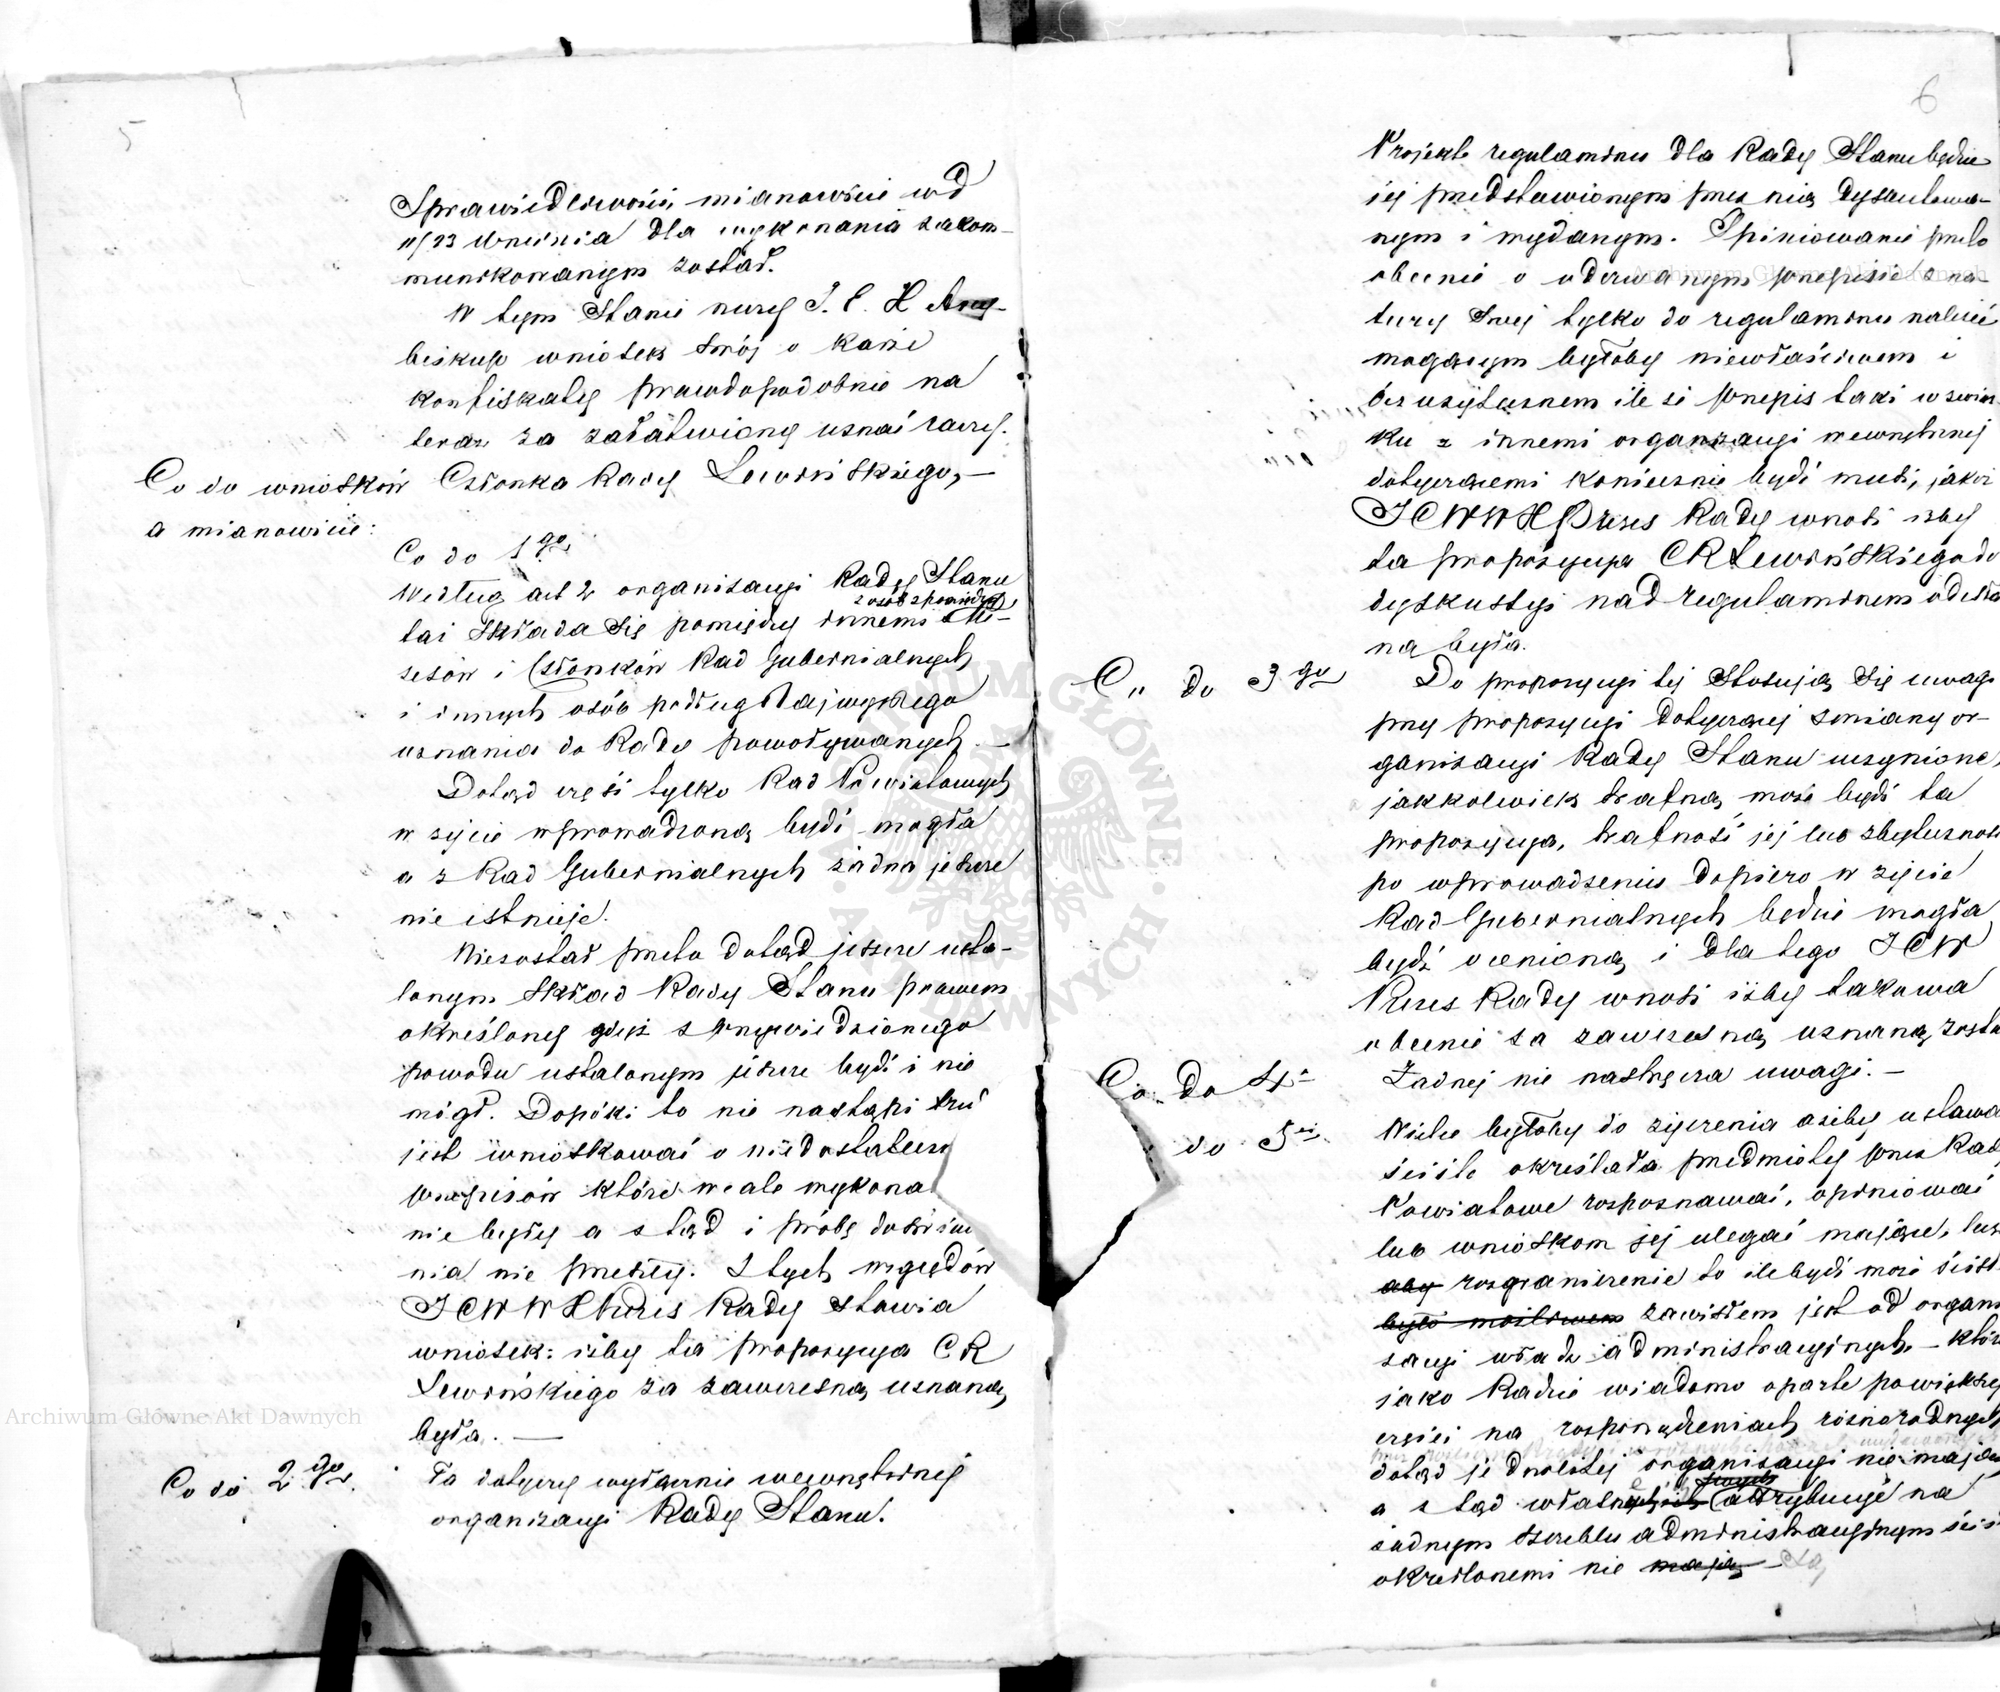 5
Sprawiedliwości mianowicie w d
11/23 Września dla wykonania zakom-
munikowanym został.
W tym Stanie rzeczy J. E. X Arcy-
biskup wniosek swój o karze
konfiskaty prawdopodobnie na
teraz za załatwiony uznać raczy.
Co do wniosków Członka Rady Lewińskiego, —
a mianowicie:
Co do 1go
Według art 2 organizacyi Rady Stanu
z osób z pomiędzy
taż składa się pomiędzy innemi
sesów i Członków Rad Gubernialnych
i innych osób podług Najwyższego
uznania do Rady powoływanych. —
Dotąd część tylko Rad Powiatowych
w życie wprowadzoną bydź mogła
a z Rad Gubernialnych żadna jeszcze
nie istnieje.
Niezostał przeto dotąd jeszcze usta-
lonym skład Rady Stanu prawem
określony gdyż z przywiedzionego
powodu ustalonym jeszcze bydź i nie
mógł. Dopóki to nie nastąpi
jest wnioskować o niedostatecz
przepisów które wcale wykona
nie były a stąd i próby doświadcze
nia nie przeszły. Z tych względów
JCWWX Prezes Rady stawia
wniosek: iżby ta propozycya CR
Lewińskiego za zawczesną uznaną
była. —
Co do 2go. Ta dotyczy wyłącznie wewnętrznej
organizacyi Rady Stanu.
6
Projekt regulaminu dla Rady Stanu będzie
jej przedstawionym przez nią dyskutowa-
nym i wydanym. Opiniowanie przeto
obecnie o oderwanym przepisie z na-
tury swej tylko do regulaminu należeć
mogącym byłoby niewłaściwem i
bezużytecznem ile że przepis taki w związ
ku z innemi organizacyi wewnętrznej
dotyczącemi koniecznie bydź musi, jakoż
JCWWX Prezes Rady wnosi iżby
ta propozycya CR Lewińskiego do
dyskussyi nad regulaminem odesła
na była.
Co do 3go Do propozycyi tej stosują się uwagi
przy propozycyi dotyczącej zmiany or-
ganizacyi Rady Stanu uczynione,
jakkolwiek trafną może bydź ta
propozycya, trafność jej lub zbyteczność
po wprowadzeniu dopiero w życie
Rad Gubernialnych będzie mogła
bydź ocenioną i dla tego JCW
Prezes Rady wnosi iżby takowa
obecnie za zawczesną uznaną zosta
Co do 4o Żadnej nie nastręcza uwagi. —
do 5o Wiele byłoby do życzenia ażeby ustawa
ściśle określała przedmioty przez Rady
Powiatowe rozpoznawać, opiniować
lub wnioskom jej ulegać mające, lecz
aby rozgraniczenie to ile bydź może ściśl
było możliwem zawisłem jest od organi
zacyi władz administracyjnych — które
jako Radzie wiadomo oparte powiększej
części na rozporządzeniach różnorodnych
dotąd jednolitej organizacyi nie mają
a stąd atrybucye na
żadnym szczeblu administracyjnym ściśl
określonemi nie mają są
Archiwum Główne Akt Dawnych
Archiwum Główne Akt Dawnych
ARCHIWUM GŁÓWNE AKT DAWNYCH